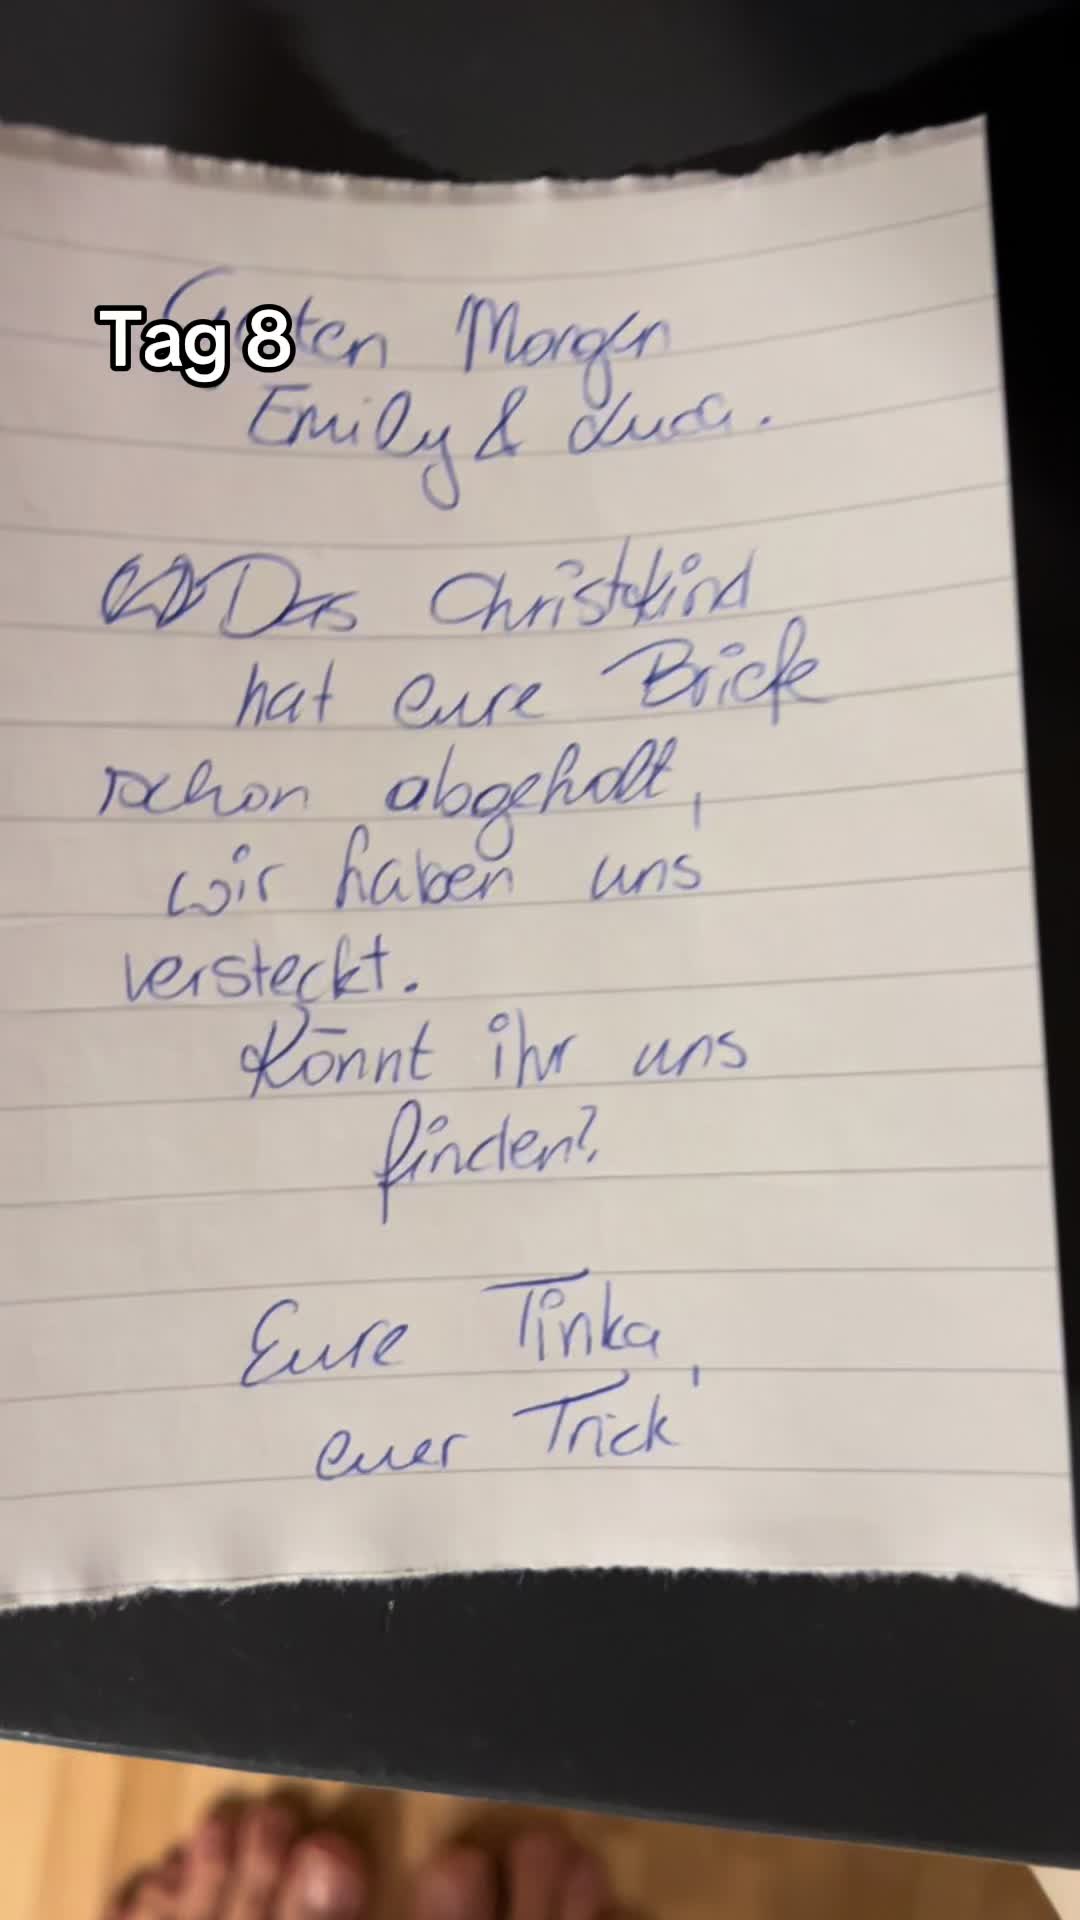 Tag 8
Guten Morgen
Emily & Luca.
Das Christkind
hat eure Briefe
schon abgeholt,
wir haben uns
versteckt.
Könnt ihr uns
finden?
Eure Tinka,
euer Trick